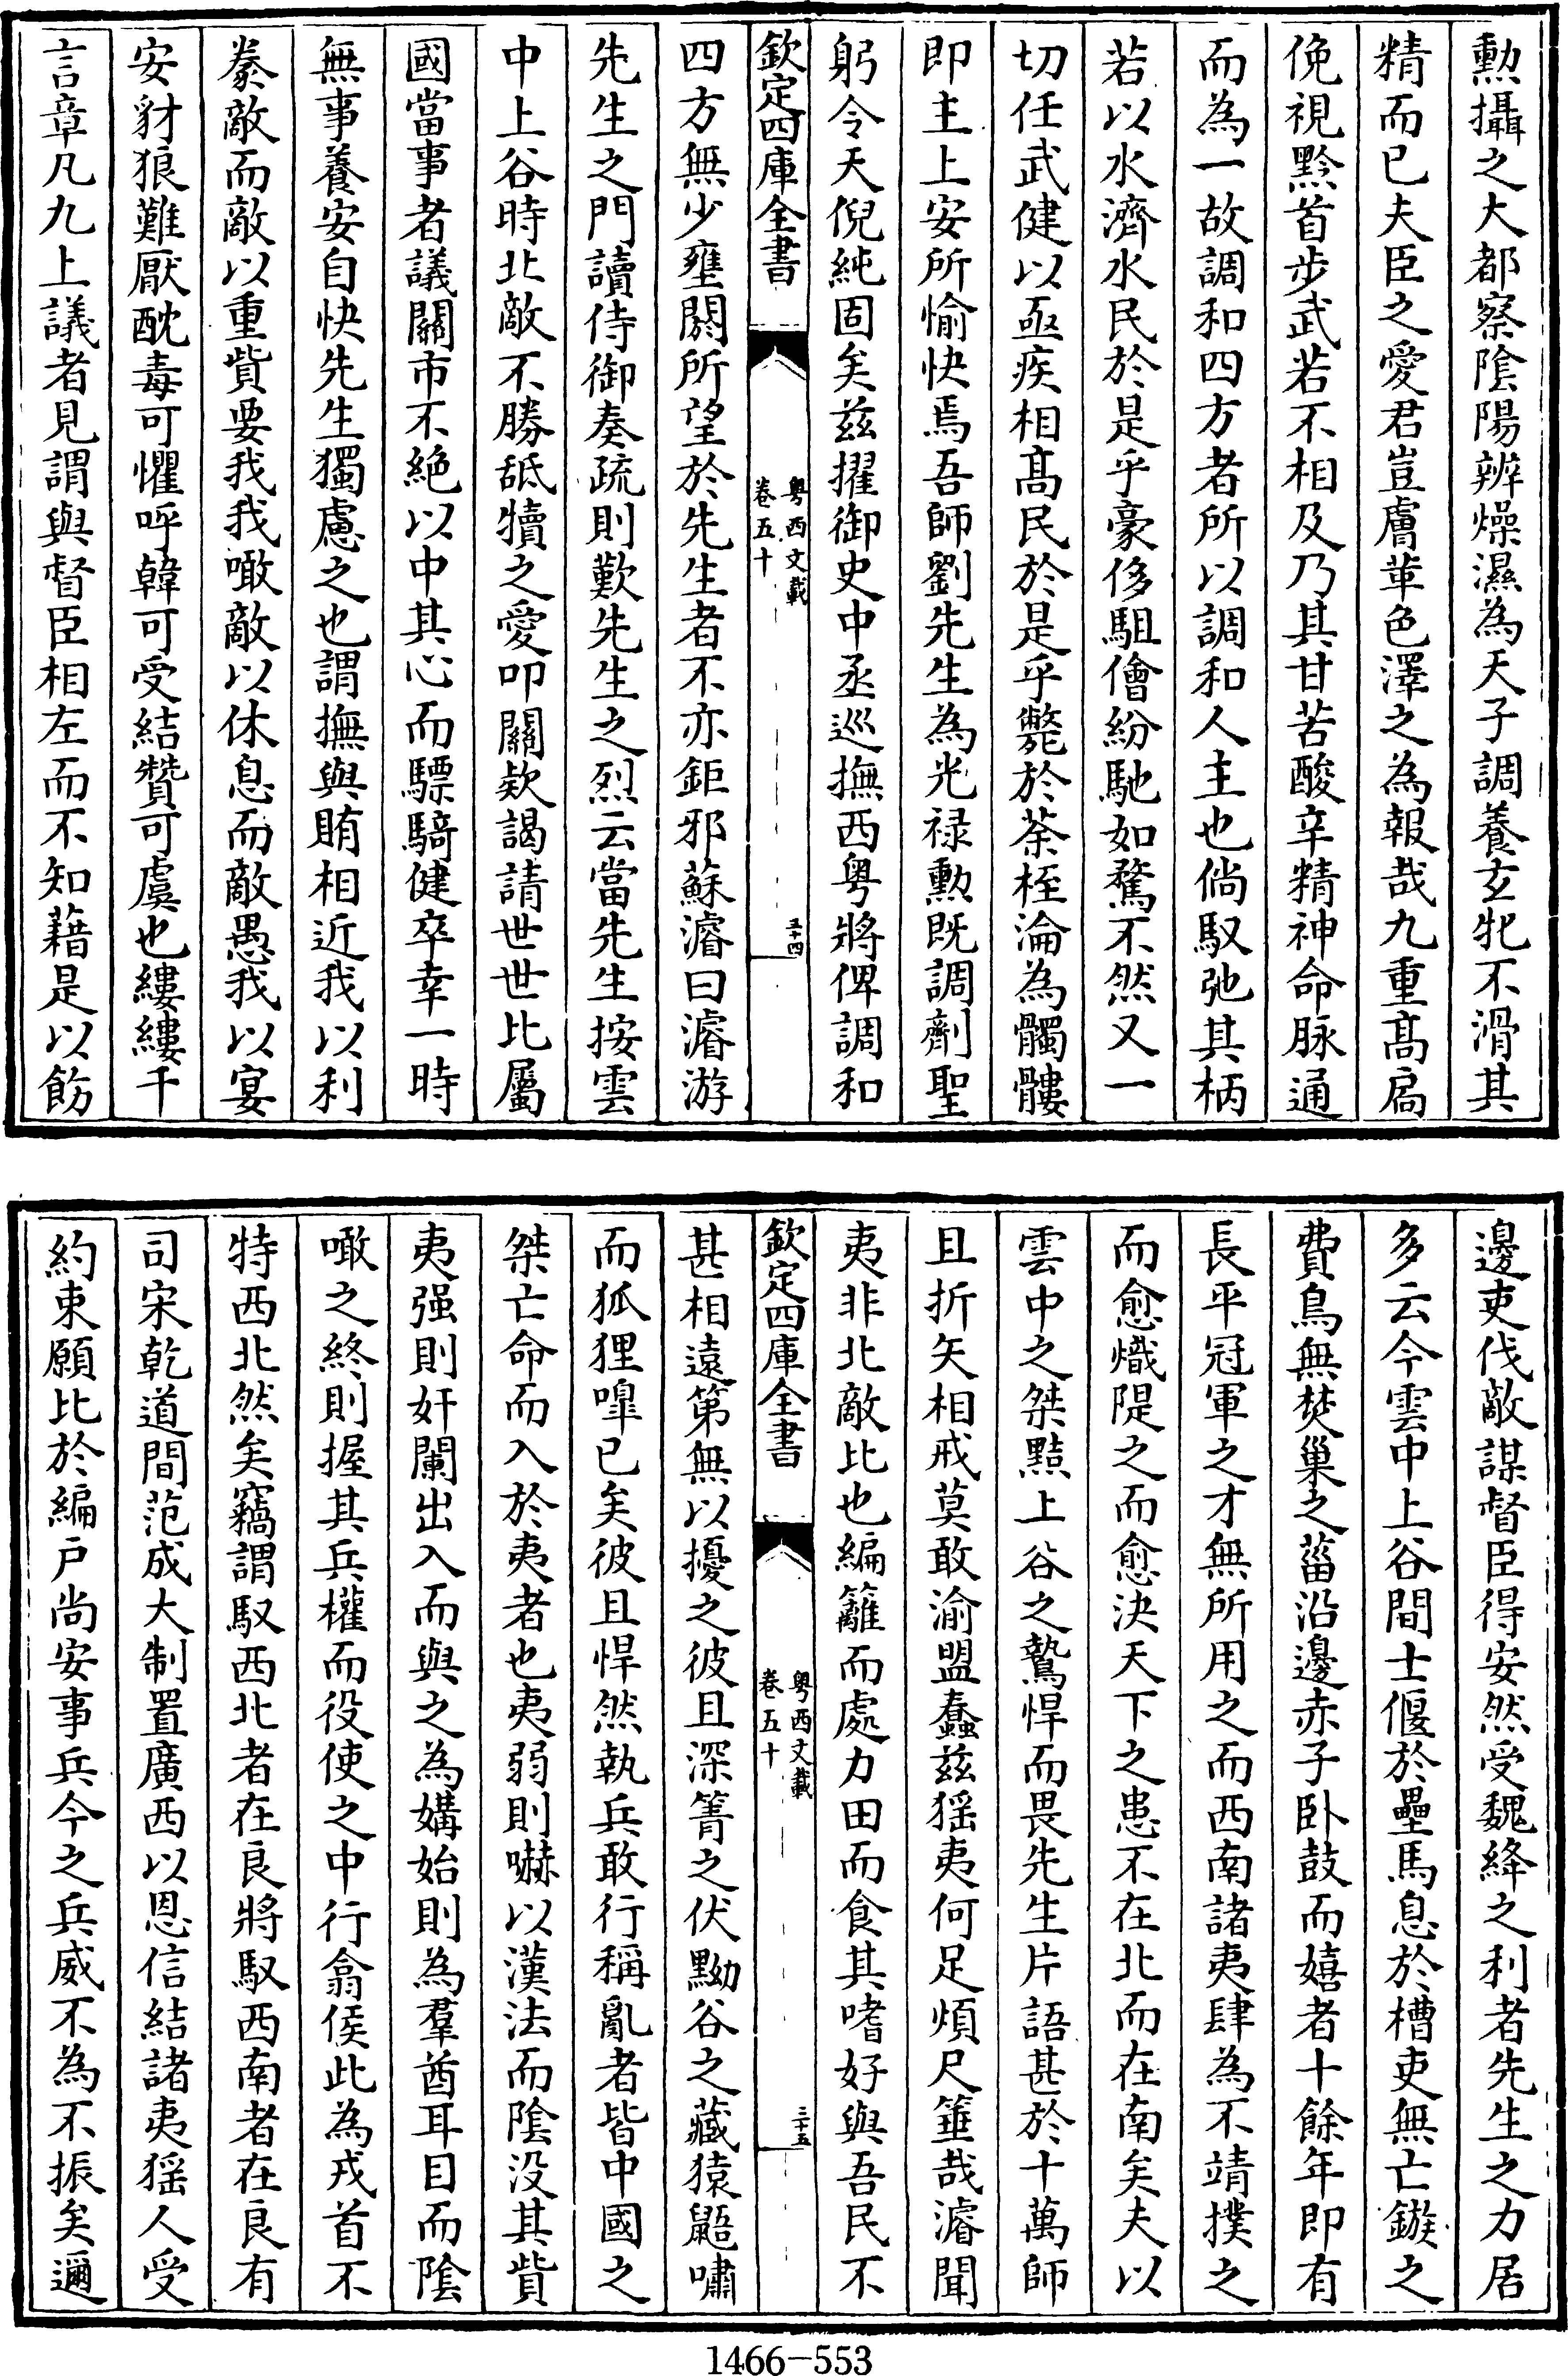 勲攝之大都察陰陽辨燥濕為天子調養玄牝不滑其
精而已夫臣之愛君豈膚葷色澤之為報哉九重髙扃
俛視黔首步武若不相及乃其甘苦酸辛精神命脉通
而為一故調和四方者所以調和人主也倘馭弛其柄
若以水濟水民於是乎豪侈駔儈紛馳如騖不然又一
切任武健以亟疾相髙民於是乎斃於荼桎淪為髑髏
即主上安所愉快焉吾師劉先生為光禄勲既調劑聖
躬令天倪純固矣兹擢御史中丞巡撫西粤將俾調和
欽定四庫全書
粤西文載
卷五十
三十四
四方無少壅閼所望於先生者不亦鉅邪蘇濬曰濬游
先生之門讀侍御奏疏則歎先生之烈云當先生按雲
中上谷時北敵不勝舐犢之愛叩關欵謁請世世比屬
國當事者議關市不絶以中其心而驃騎健卒幸一時
無事養安自快先生獨慮之也謂撫與賄相近我以利
豢敵而敵以重貲要我我噉敵以休息而敵愚我以宴
安豺狼難厭酖毒可懼呼韓可受結贊可虞也縷縷千
言章凡九上議者見謂與督臣相左而不知藉是以飭
邊吏伐敵謀督臣得安然受魏絳之利者先生之力居
多云今雲中上谷間士偃於壘馬息於槽吏無亡鏃之
費鳥無焚巢之菑沿邊赤子卧鼓而嬉者十餘年即有
長平冠軍之才無所用之而西南諸夷肆為不靖撲之
而愈熾隄之而愈決天下之患不在北而在南矣夫以
雲中之桀黠上谷之鷙悍而畏先生片語甚於十萬師
且折矢相戒莫敢渝盟蠢兹猺夷何足煩尺箠哉濬聞
夷非北敵比也編籬而處力田而食其嗜好與吾民不
欽定四庫全書
粤西文載
卷五十
三十五
甚相遠第無以擾之彼且深箐之伏黝谷之藏猿鼯嘯
而狐狸嘷已矣彼且悍然執兵敢行稱亂者皆中國之
桀亡命而入於夷者也夷弱則嚇以漢法而陰没其貲
夷强則奸闌出入而與之為媾始則為羣酋耳目而陰
噉之終則握其兵權而役使之中行翕侯此為戎首不
特西北然矣竊謂馭西北者在良將馭西南者在良有
司宋乾道間范成大制置廣西以恩信結諸夷猺人受
約束願比於編户尚安事兵今之兵威不為不振矣邇
1466-553